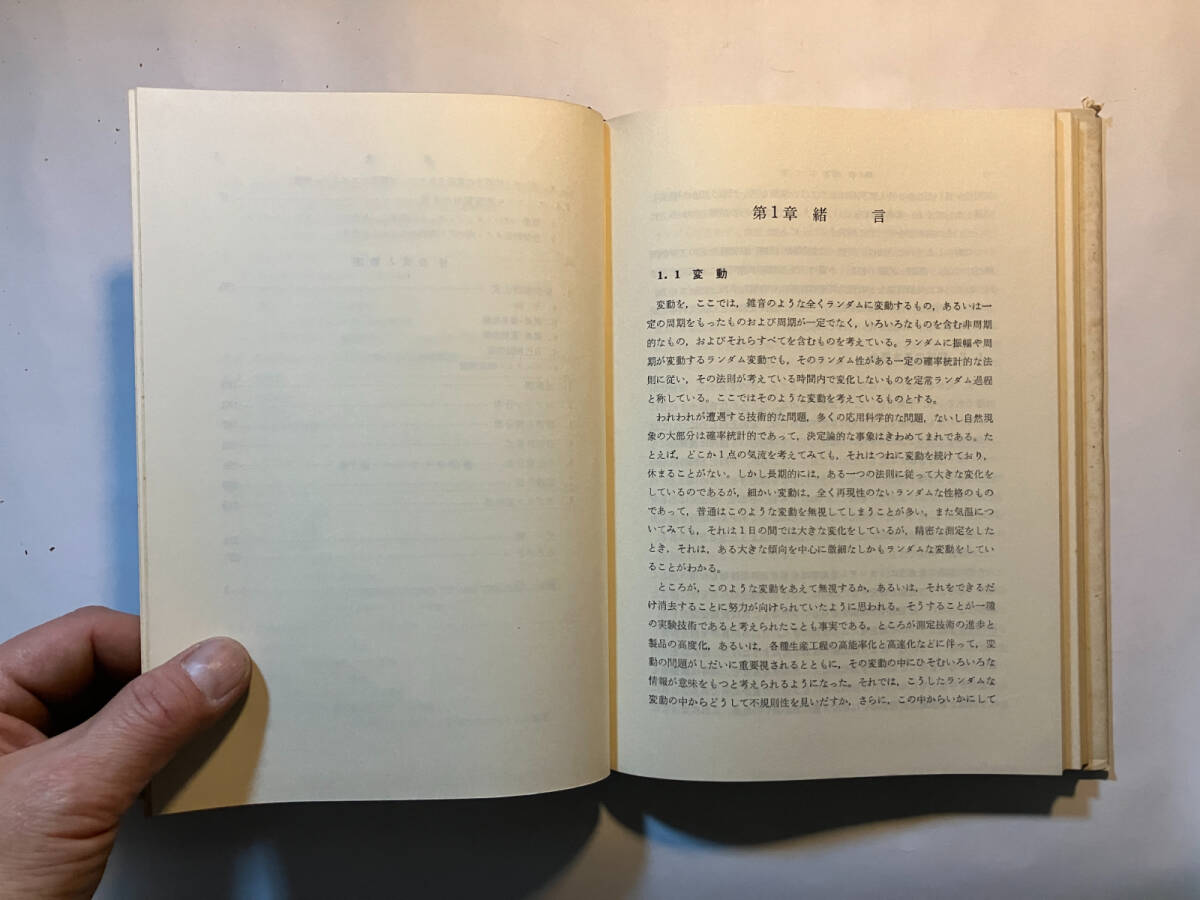 第1章 緒言
1.1 変動
変動を，ここでは，雑音のような全くランダムに変動するもの，あるいは一
定の周期をもったものおよび周期が一定でなく，いろいろなものを含む非周期
的なもの，およびそれらすべてを含むものを考えている。ランダムに振幅や周
期が変動するランダム変動でも，そのランダム性がある一定の確率統計的な法
則に従い，その法則が考えている時間内で変化しないものを定常ランダム過程
と称している。ここではそのような変動を考えているものとする。
われわれが遭遇する技術的な問題，多くの応用科学的な問題，ないし自然現
象の大部分は確率統計的であって，決定論的な事象はきわめてまれである。た
とえば，どこか1点の気流を考えてみても，それはつねに変動を続けており，
休まることがない。しかし長期的には，ある一つの法則に従って大きな変化を
しているのであるが，細かい変動は，全く再現性のないランダムな性格のもの
であって，普通はこのような変動を無視してしまうことが多い。また気温につ
いてみても，それは1日の間では大きな変化をしているが，精密な測定をした
とき，それは，ある大きな傾向を中心に微細なしかもランダムな変動をしてい
ることがわかる。
ところが，このような変動をあえて無視するか，あるいは，それをできるだ
け消去することに努力が向けられていたように思われる。そうすることが一種
の実験技術であると考えられたことも事実である。ところが測定技術の進歩と
製品の高度化，あるいは，各種生産工程の高能率化と高速化などに伴って，変
動の問題がしだいに重要視されるとともに，その変動の中にひそむいろいろな
情報が意味をもつと考えられるようになった。それでは，こうしたランダムな
変動の中からどうして不規則性を見いだすか，さらに，この中からいかにして